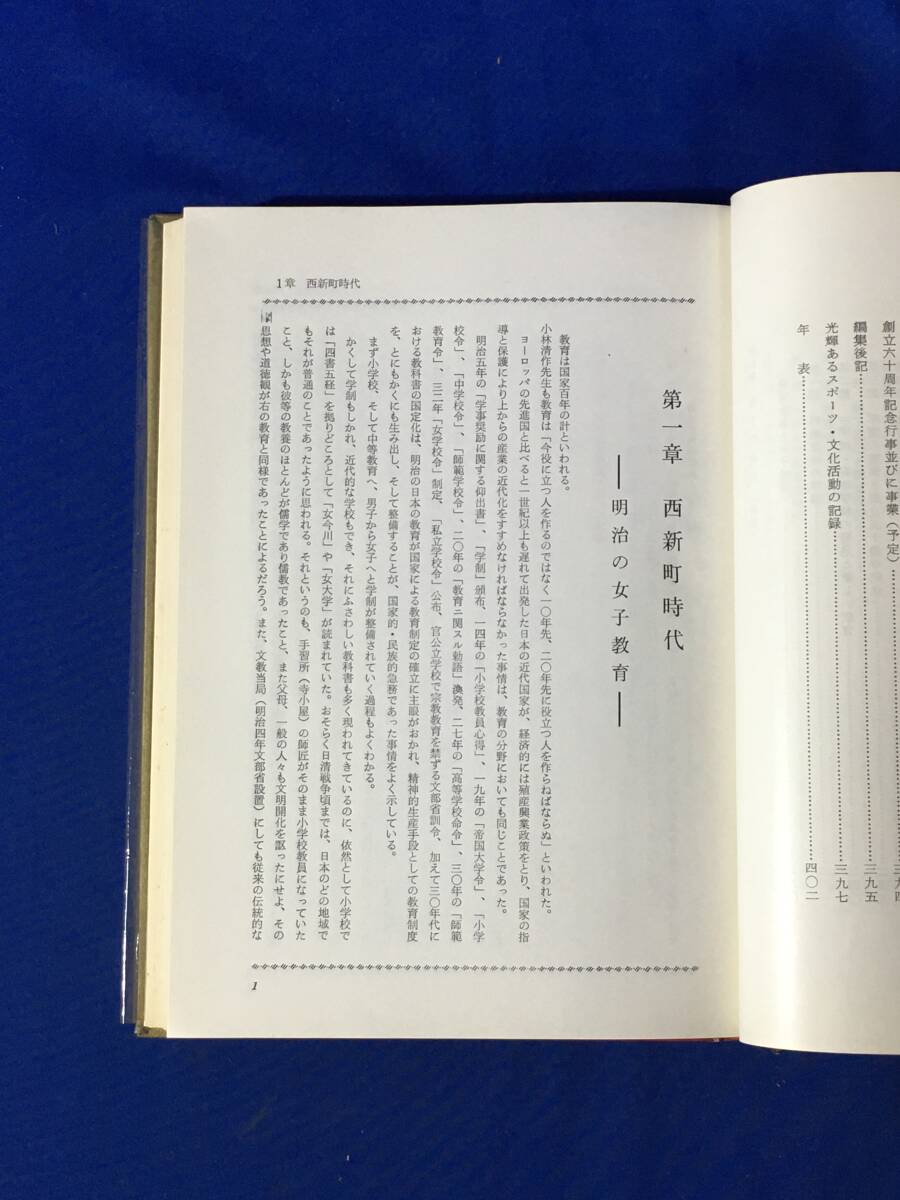 創立六十周年記念行事並びに事業(予定)……………三九四
編集後記……………三九五
光輝あるスポーツ・文化活動の記録……………三九七
年　表……………四〇二
1章　西新町時代
第一章　西新町時代
――明治の女子教育――
教育は国家百年の計といわれる。
小林清作先生も教育は「今役に立つ人を作るのではなく一〇年先、二〇年先に役立つ人を作らねばならぬ」といわれた。
ヨーロッパの先進国と比べると一世紀以上も遅れて出発した日本の近代国家が、経済的には殖産興業政策をとり、国家の指
導と保護により上からの産業の近代化をすすめなければならなかった事情は、教育の分野においても同じことであった。
明治五年の「学事奨励に関する仰出書」、「学制」頒布、一四年の「小学校教員心得」、一九年の「帝国大学令」、「小学
校令」、「中学校令」、「師範学校令」、二〇年の「教育ニ関スル勅語」渙発、二七年の「高等学校命令」、三〇年の「師範
教育令」、三二年「女学校令」制定、「私立学校令」公布、官公立学校で宗教教育を禁ずる文部省訓令、加えて三〇年代に
おける教科書の国定化は、明治の日本の教育が国家による教育制定の確立に主眼がおかれ、精神的生産手段としての教育制度
を、とにもかくにも生み出し、そして整備することが、国家的・民族的急務であった事情をよく示している。
まず小学校、そして中等教育へ、男子から女子へと学制が整備されていく過程もよくわかる。
かくして学制もしかれ、近代的な学校もでき、それにふさわしい教科書も多く現われてきているのに、依然として小学校で
は「四書五経」を掲りどころとして「女今川」や「女大学」が読まれていた。おそらく日清戦争頃までは、日本のどの地域で
もそれが普通のことであったように思われる。それというのも、手習所(寺小屋)の師匠がそのまま小学校教員になっていた
こと、しかも彼等の教養のほとんどが儒学であり儒教であったこと、また父母、一般の人々も文明開化を謳ったにせよ、その
思想や道徳観が右の教育と同様であったことによるだろう。また、文教当局(明治四年文部省設置)にしても従来の伝統的な
1